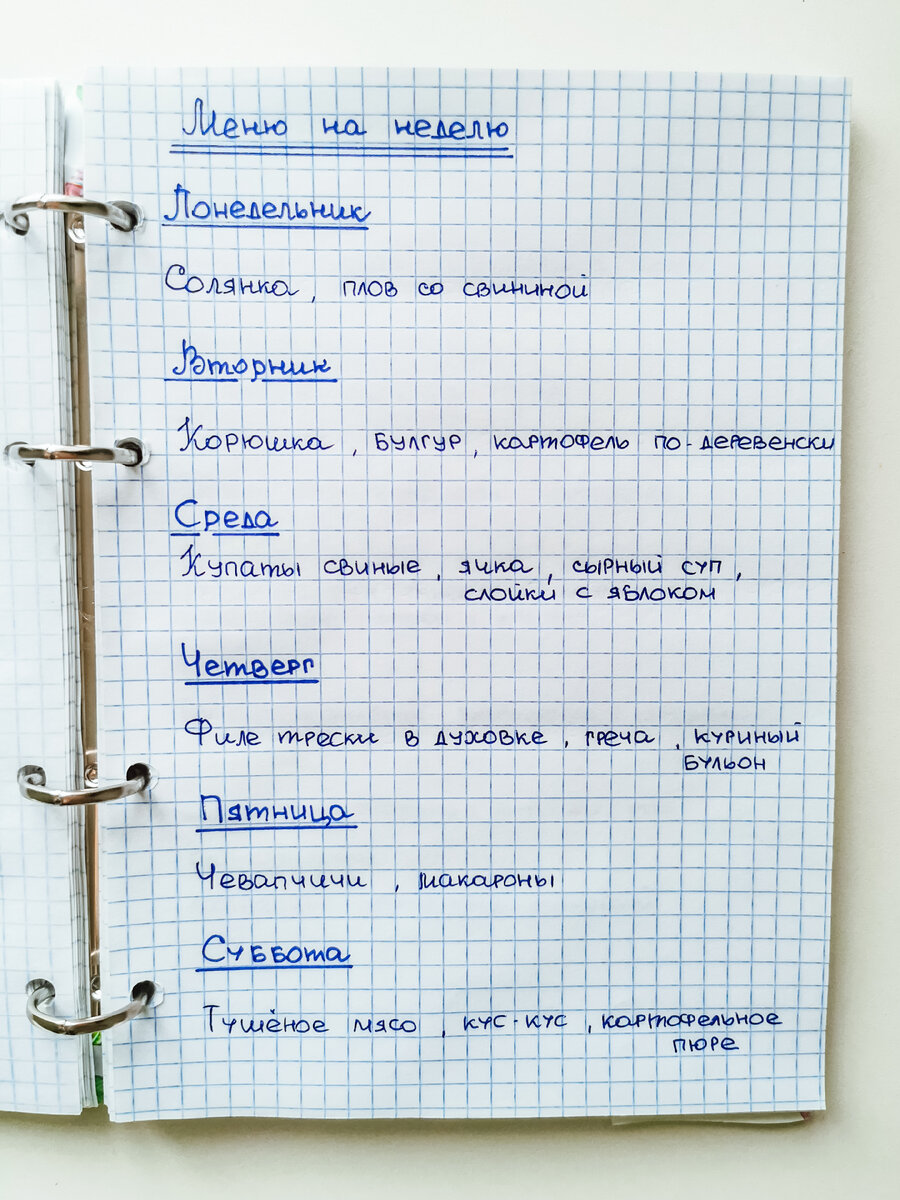 Меню на неделю
Понедельник
Солянка, плов со свининой
Вторник
Корюшка, булгур, картофель по-деревенски
Среда
Купаты свиные, ячка, сырный суп,
слойки с яблоком
Четверг
Филе трески в духовке, греча, куриный
бульон
Пятница
Чевапчичи, макароны
Суббота
Тушёное мясо, кус-кус, картофельное
пюре